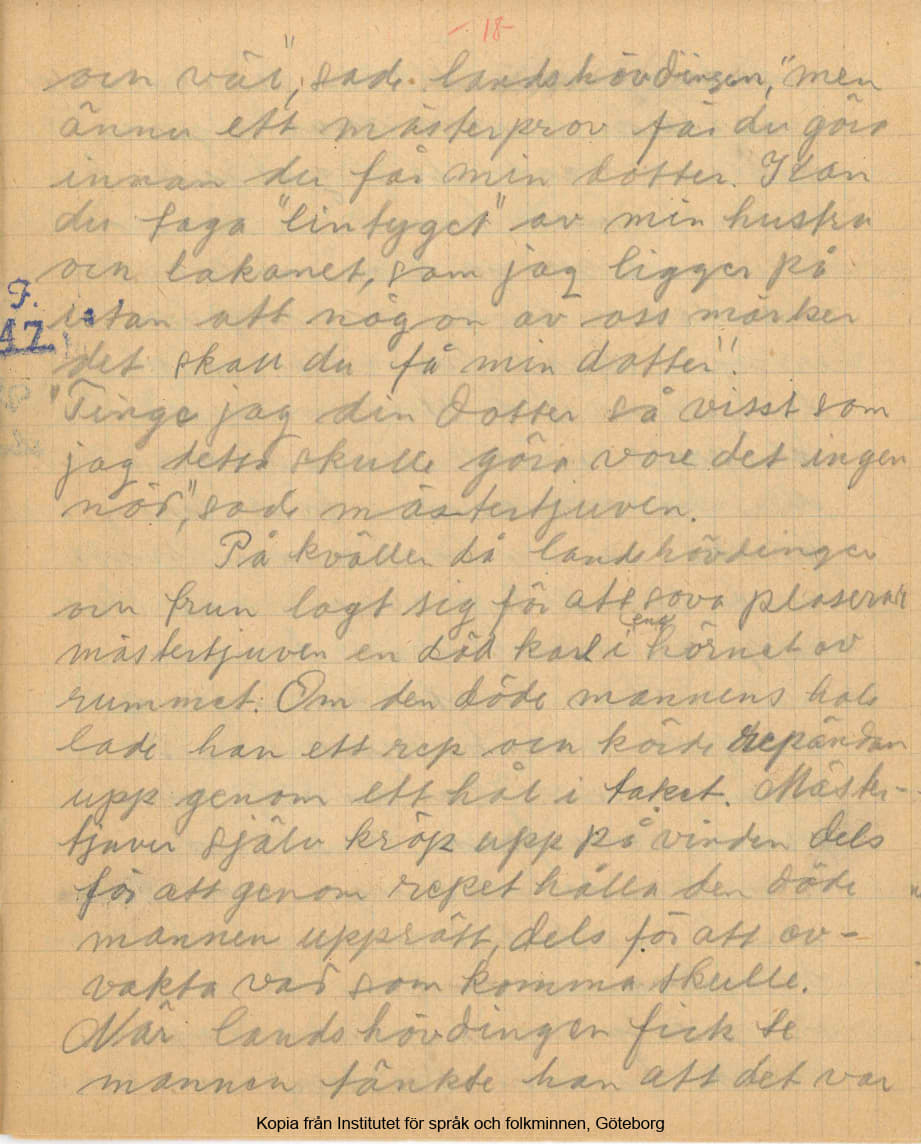 - 18 -
och väl", sade landshövdingen, "men
ännu ett mästerprov får du göra
innan du får min dotter. Kan
du taga "lintyget" av min hustru
och lakanet, som jag ligger på
utan att någon av oss märker
det skall du få min dotter"!
"Finge jag din dotter så visst som
jag detta skulle göra vore det ingen
nöd", sade mästertjuven.
På kvällen då landshövdingen
och frun lagt sig för att sova placerar
mästertjuven en död karl i ena hörnet av
rummet. Om den döde mannens hals
lade han ett rep och körde repändan
upp genom ett hål i taket. Mäster-
tjuven själv kröp upp på vinden dels
för att genom repet hålla den döde
mannen upprätt, dels för att av-
vakta vad som komma skulle.
När landshövdingen fick se
mannen tänkte han att det var
F.
47.
Kopia från Institutet för språk och folkminnen, Göteborg